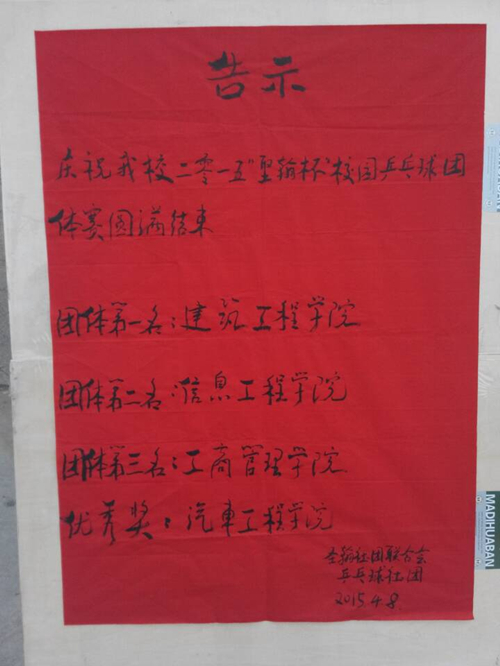 告示
庆祝我校二零一五"圣翰杯"校园乒乓球团
体赛圆满结束
团体第一名:建筑工程学院
团体第二名:信息工程学院
团体第三名:工商管理学院
优秀奖:汽車工程学院
圣翰社团联合会
乒乓球社团
2015.4.8
MADIHUABAN